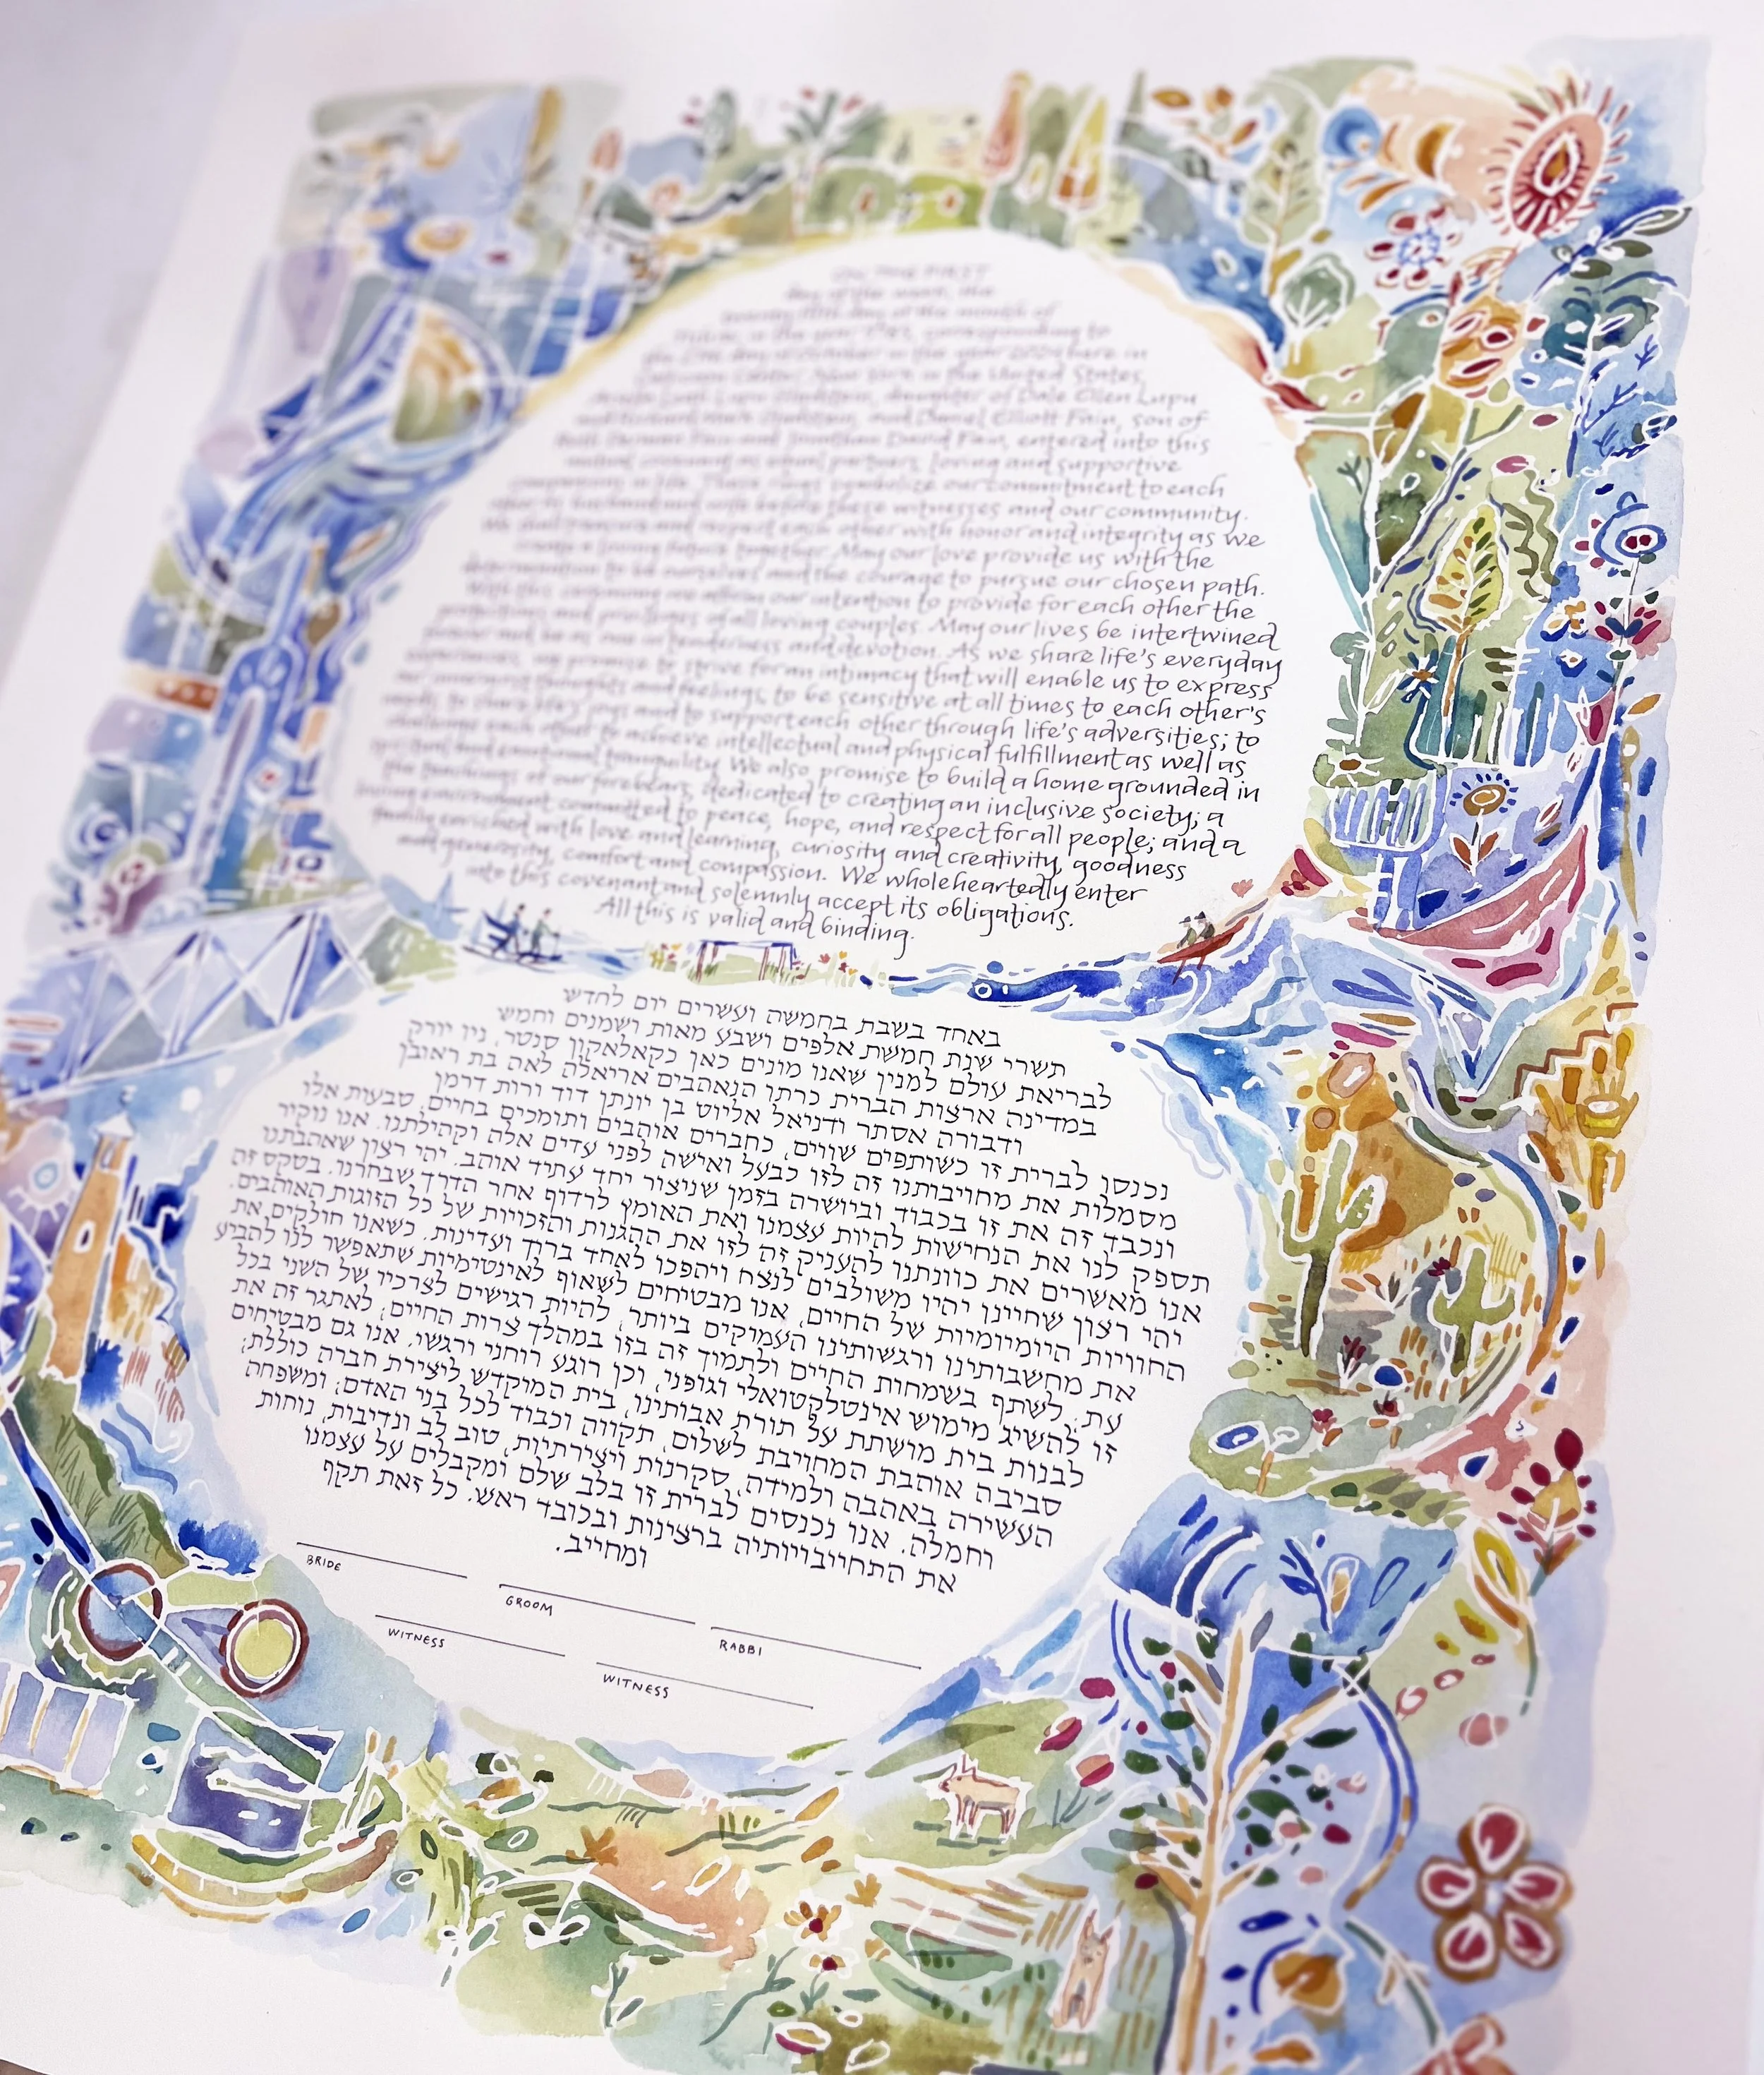 ON THE FIRST
day of the week, the
twenty fifth day of the month of
Tishrei, in the year 5785, corresponding to
the day of October in the year 2024 here in
Center, New York in the United States,
Leah Lupu daughter of Dale Ellen Lupu
and Richard Mark and Daniel Elliott Fain, son of
Ruth Fain and Jonathan David Fain, entered into this
mutual covenant as equal partners, loving and supportive
companions in life. These rings symbolize our commitment to each
other as husband and wife before these witnesses and our community.
We shall treasure and respect each other with honor and integrity as we
create a loving future together. May our love provide us with the
determination to be ourselves and the courage to pursue our chosen path.
With this ceremony we affirm our intention to provide for each other the
protections and privileges of all loving couples. May our lives be intertwined
forever and be as one in tenderness and devotion. As we share life's everyday
experiences, we promise to strive for an intimacy that will enable us to express
our innermost thoughts and feelings, to be sensitive at all times to each other's
needs, to share life's joys and to support each other through life's adversities; to
challenge each other to achieve intellectual and physical fulfillment as well as
spiritual and emotional tranquility. We also promise to build a home grounded in
the teachings of our forebears, dedicated to creating an inclusive society; a
loving environment committed to peace, hope, and respect for all people; and a
family enriched with love and learning, curiosity and creativity, goodness
and generosity, comfort and compassion. We wholeheartedly enter
into this covenant and solemnly accept its obligations.
All this is valid and binding.
באחד בשבת בחמשה ועשרים יום לחדש
תשרי שנת חמשת אלפים ושבע מאות ושמנים וחמש
לבריאת עולם למנין שאנו מונים כאן כקאלאקון סנטר, ניו יורק
במדינה ארצות הברית כרתו הנאהבים אריאלה לאה בת ראובן
ודבורה אסתר ודניאל אליוט בן יונתן דוד ורות דרימן
נכנסן לברית זו כשותפים שווים, כחברים אוהבים ותומכים בחיים, טבעות אלו
מסמלות את מחויבותנו זה לזו כבעל ואישה לפני עדים אלה וקהילתנו. אנו נוקיר
ונכבד זה את זו בכבוד וביושרה בזמן שניצור יחד עתיד אוהב. יהי רצון שאהבתנו
תספק לנו את הנחישות להיות עצמנו ואת האומץ לרדוף אחר הדרך שבחרנו. בטקס זה
אנו מאשרים את כוונתנו להעניק זה לזו את ההגנות והזכויות של כל הזוגות האוהבים.
יהי רצון שחיינן יהיו משולבים לנצח ויהפכו לאחד ברוך ועדינות. כשאנו חולקים את
החוויות היומיומיות של החיים, אנו מבטיחים לשאוף לאינטימיות שתאפשר לנו להביע
את מחשבותינו ורגשותינו העמוקים ביותר, להיות רגישים לצרכיו של השני בכל
עת; לשתף בשמחות החיים ולתמוך זה בזו במהלך צרות החיים; לאתגר זה את
זו להשיג מימוש אינטלקטואלי וגופני, וכן רוגע רוחני ורגשי. אנו גם מבטיחים
לבנות בית מושתת על תורת אבותינו, בית המוקדש ליצירת חברה כוללת;
סביבה אוהבת המחויבת לשלום, תקווה וכבוד לכל בני האדם; ומשפחה
העשירה באהבה ולמידה, סקרנות ויצירתיות, טוב לב ונדיבות, נוחות
וחמלה. אנו נכנסים לברית זו בלב שלם ומקבלים על עצמנו
את התחייבויותיה ברצינות ובכובד ראש. כל זאת תקף
ומחייב.
BRIDE
GROOM
RABBI
WITNESS
WITNESS